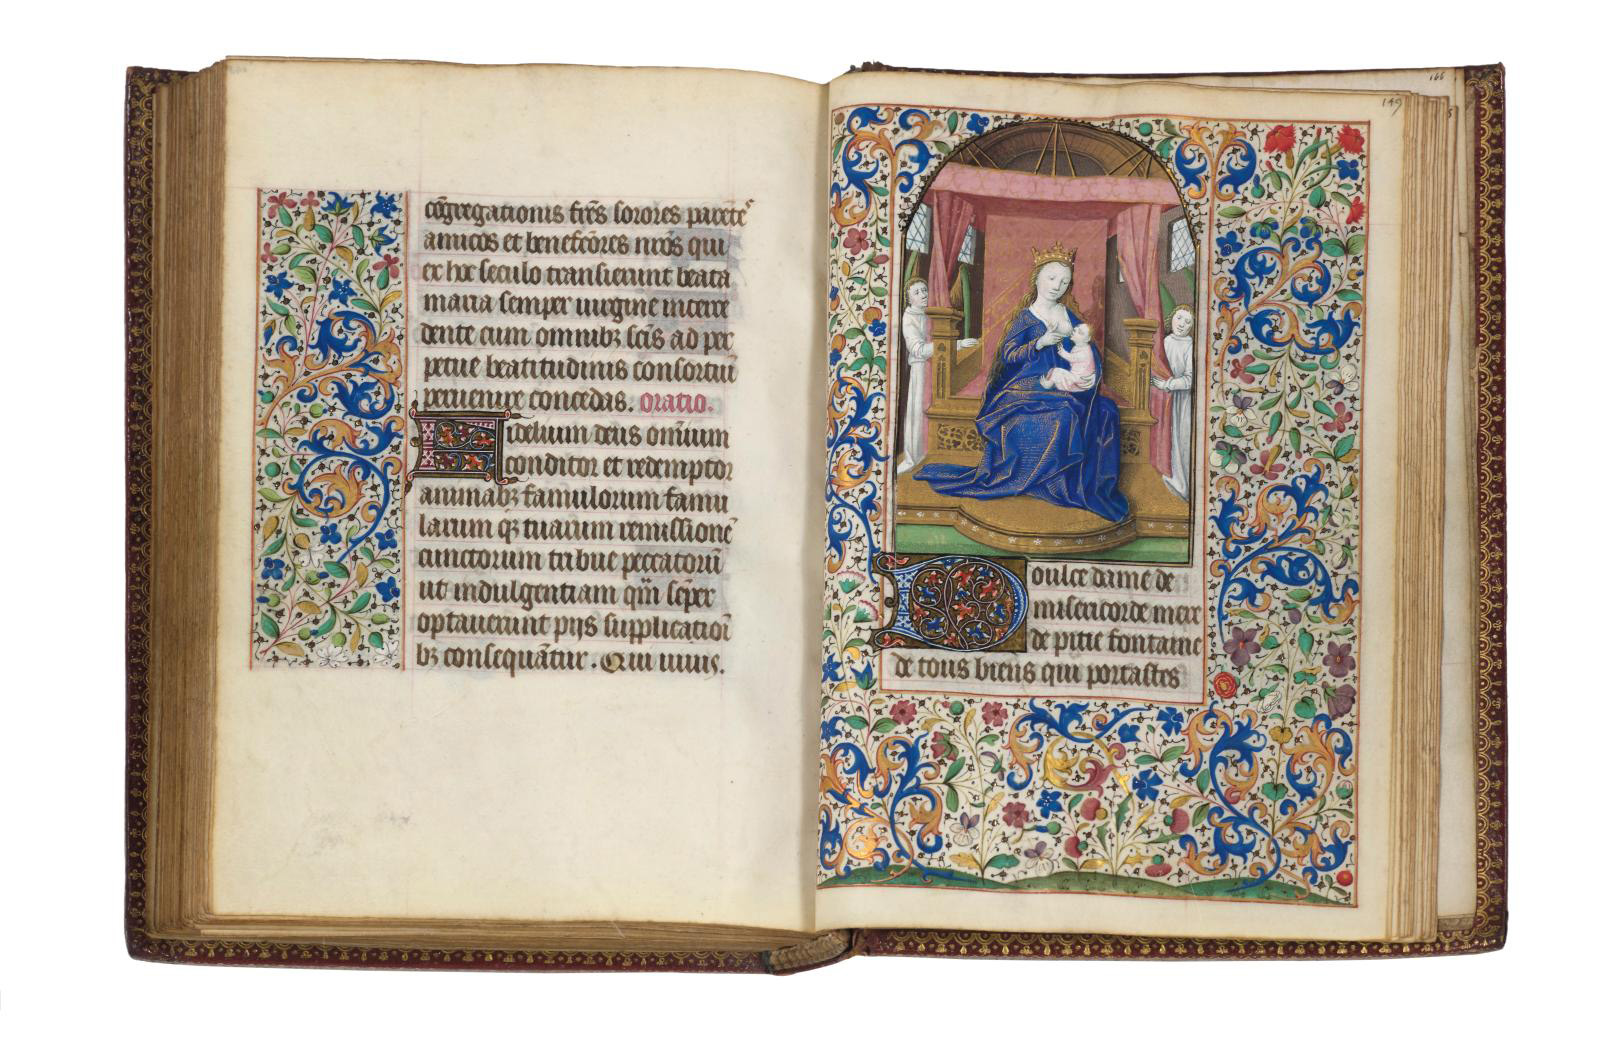 cōgregationis fr̄es sorores parēte
amicos et benefc̄ores nr̄os qui
ex hoc seculo transierunt beata
maria semper uirgine interce
dente cum omnibꝫ sc̄is ad per
petue beatitudinis consortiū
peruenire concedas. oratio.
Fidelium deus omnium
conditor et redemptor
animabꝫ famulorum famu
larum qꝫ tuarum remissionē
cunctorum tribue peccatorū
ut indulgentiam quā seper
optauerunt pijs supplicatioī
bꝫ consequātur. Qui uiuis.
149
166
Doulce dame de
misericorde mere
de pitie fontaine
de tous biens qui portastes